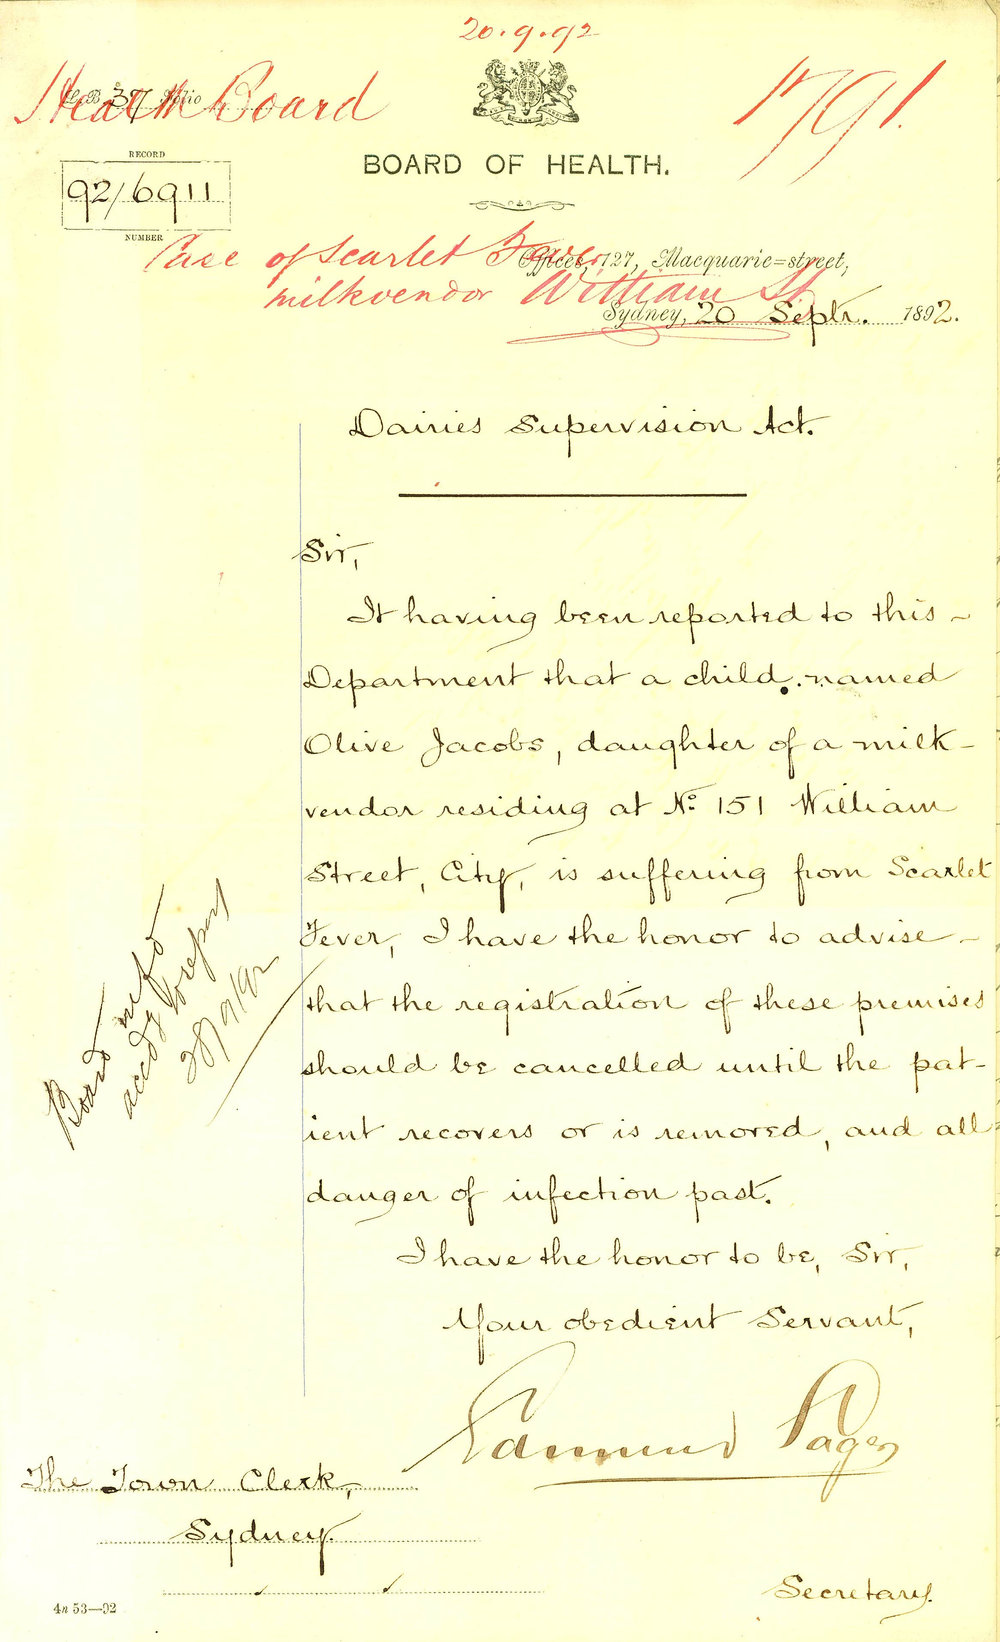 20.9.92
Health Board
1791.
L.B. 37 Folio
RECORD
92/6911
NUMBER
BOARD OF HEALTH.
Case of Scarlet Fever
Offices, 127, Macquarie=street,
milkvendor William St
Sydney, 20 Septr. 1892.
Dairies Supervision Act.
Sir,
It having been reported to this
Department that a child, named
Olive Jacobs, daughter of a milk-
vendor residing at No. 151 William
Street, City, is suffering from Scarlet
Fever, I have the honor to advise
that the registration of these premises
should be cancelled until the pat-
ient recovers or is removed, and all
danger of infection past.
I have the honor to be, Sir,
Your obedient Servant,
Edmund Sager
Secretary.
Board info
accdg to report
28/9/92
The Town Clerk,
Sydney.
4a 53—92